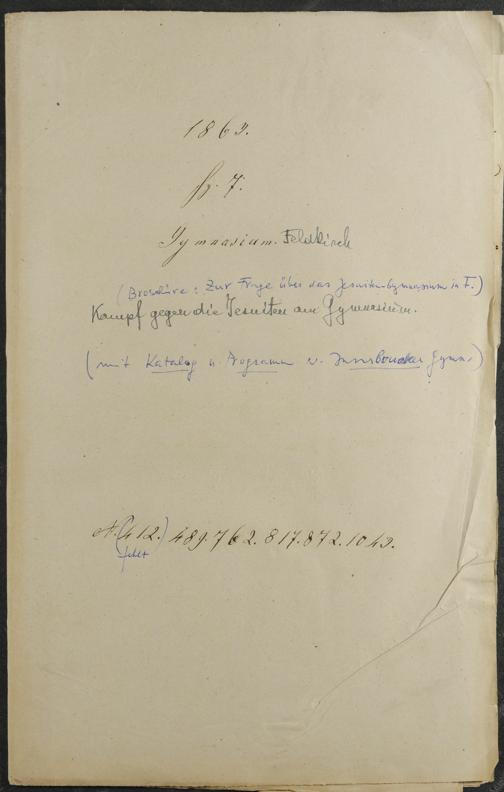 1863.
Fz. 7.
Gymnasium. Feldkirch
(Broschüre: Zur Frage über das Jesuiten-Gymnasium in F.)
Kampf gegen die Jesuiten am Gymnasium.
(mit Katalog u. Programm v. Innsbrucker Gymn.)
N. (412.) 489. 762. 817. 872. 1043.
fehlt